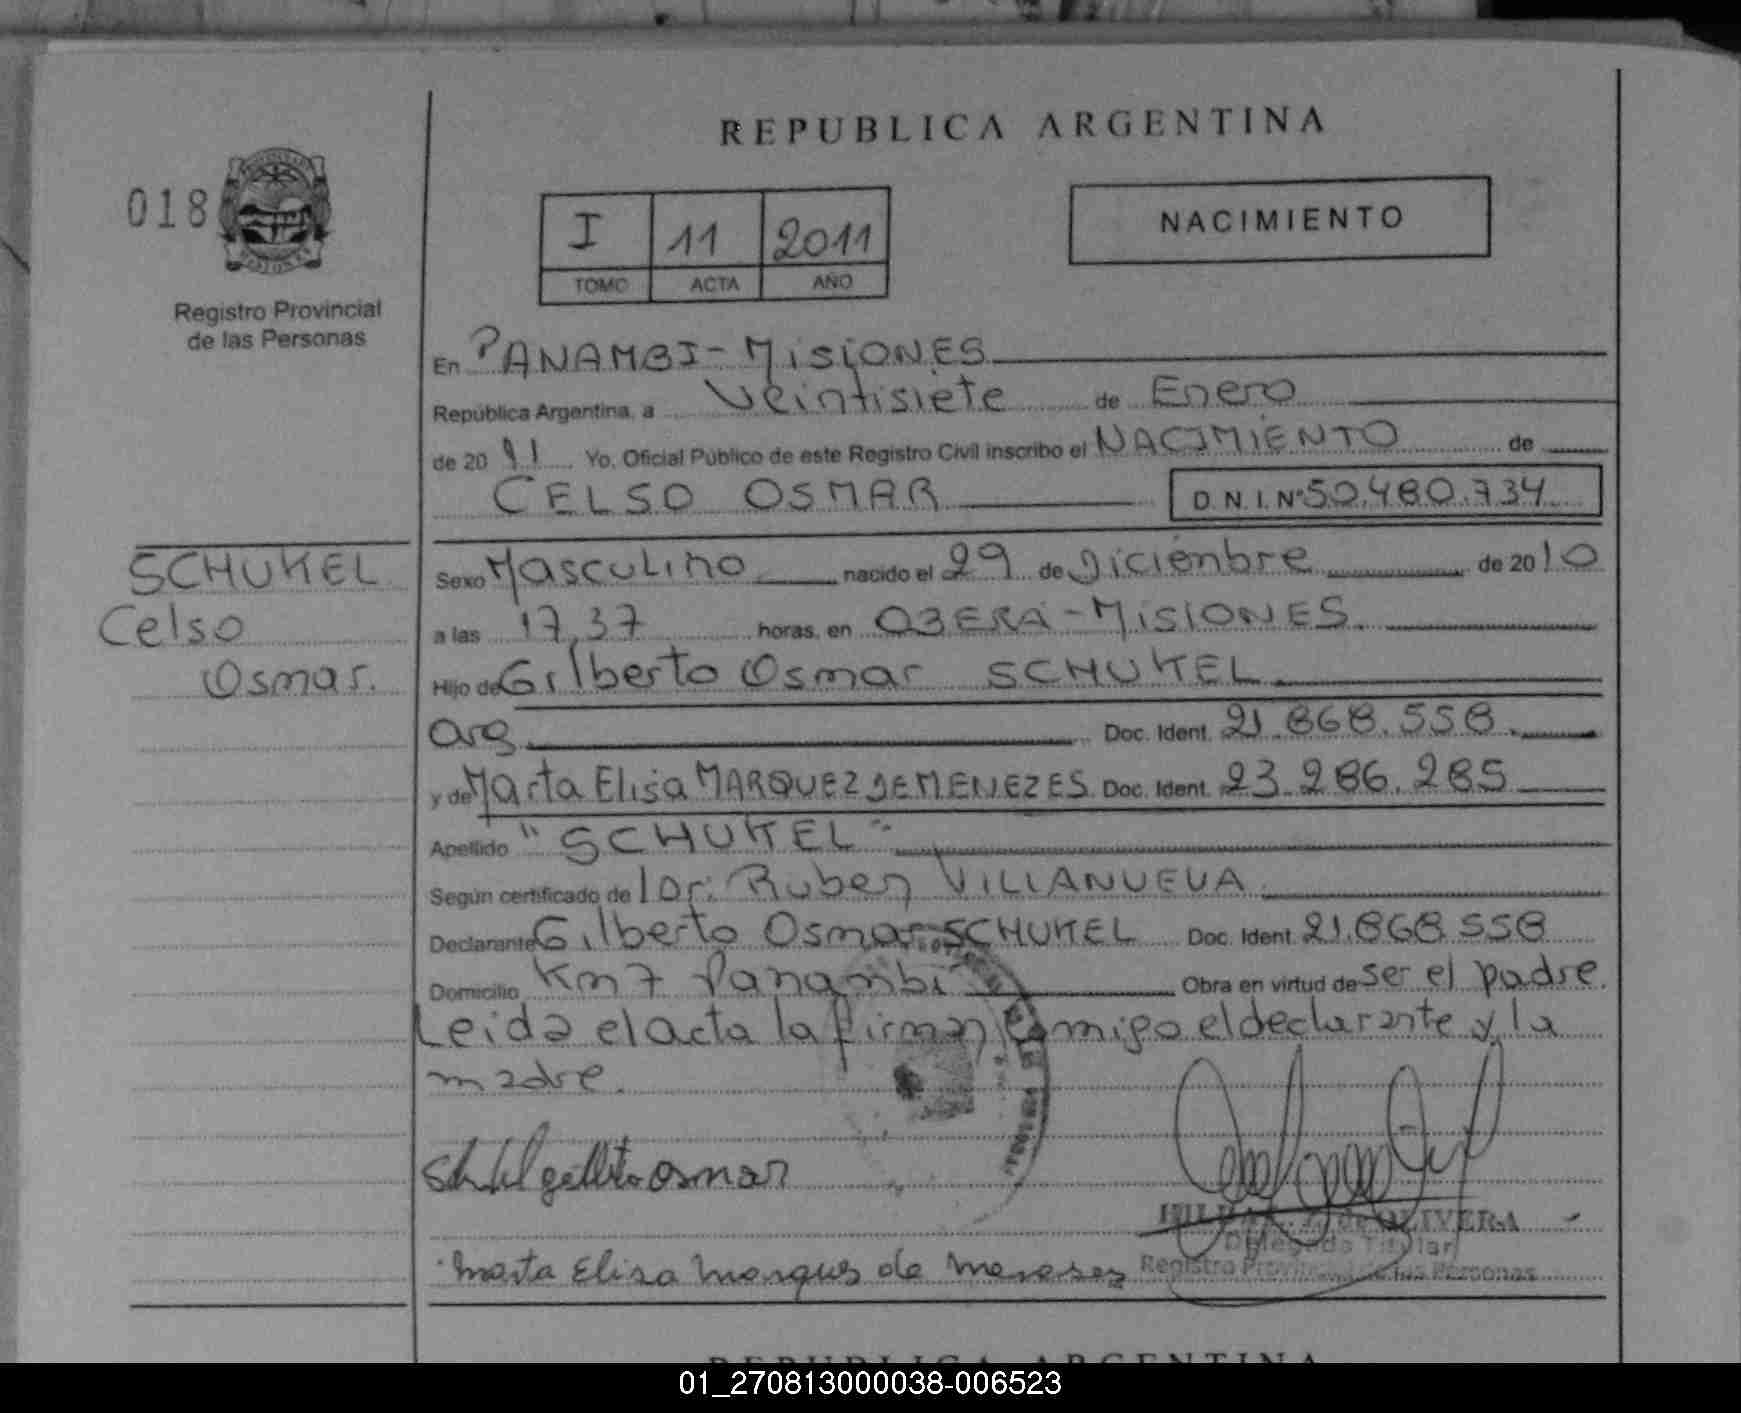 REPUBLICA ARGENTINA
018
I 11 2011
TOMO ACTA AÑO
NACIMIENTO
Registro Provincial
de las Personas
En PANAMBI - MISIONES
República Argentina, a Veintisiete de Enero
de 20 11 Yo, Oficial Público de este Registro Civil inscribo el NACIMIENTO de
CELSO OSMAR D.N.I. Nº 50.480.734
SCHUKEL
Celso
Osmar.
Sexo Masculino nacido el 29 de Diciembre de 2010
a las 17,37 horas, en OBERA - MISIONES.
Hijo de Gilberto Osmar SCHUKEL
Arg Doc. Ident. 21.868.558.
y de Marta Elisa MARQUEZ DE MENEZES Doc. Ident. 23.286.285
Apellido "SCHUKEL"
Según certificado de Dr. Ruben VILLANUEVA
Declarante Gilberto Osmar SCHUKEL Doc. Ident. 21.868.558
Domicilio Km 7 Panambi Obra en virtud de ser el padre.
Leida el acta la firman comigo el declarante y la
madre.
osmar
Marta Elisa Marques de Meneses
de OLIVERA
Delegada Titular
Registro Provincial de las Personas
REPUBLICA ARGENTINA
01_270813000038-006523